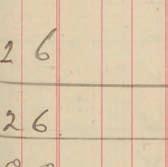 26
26